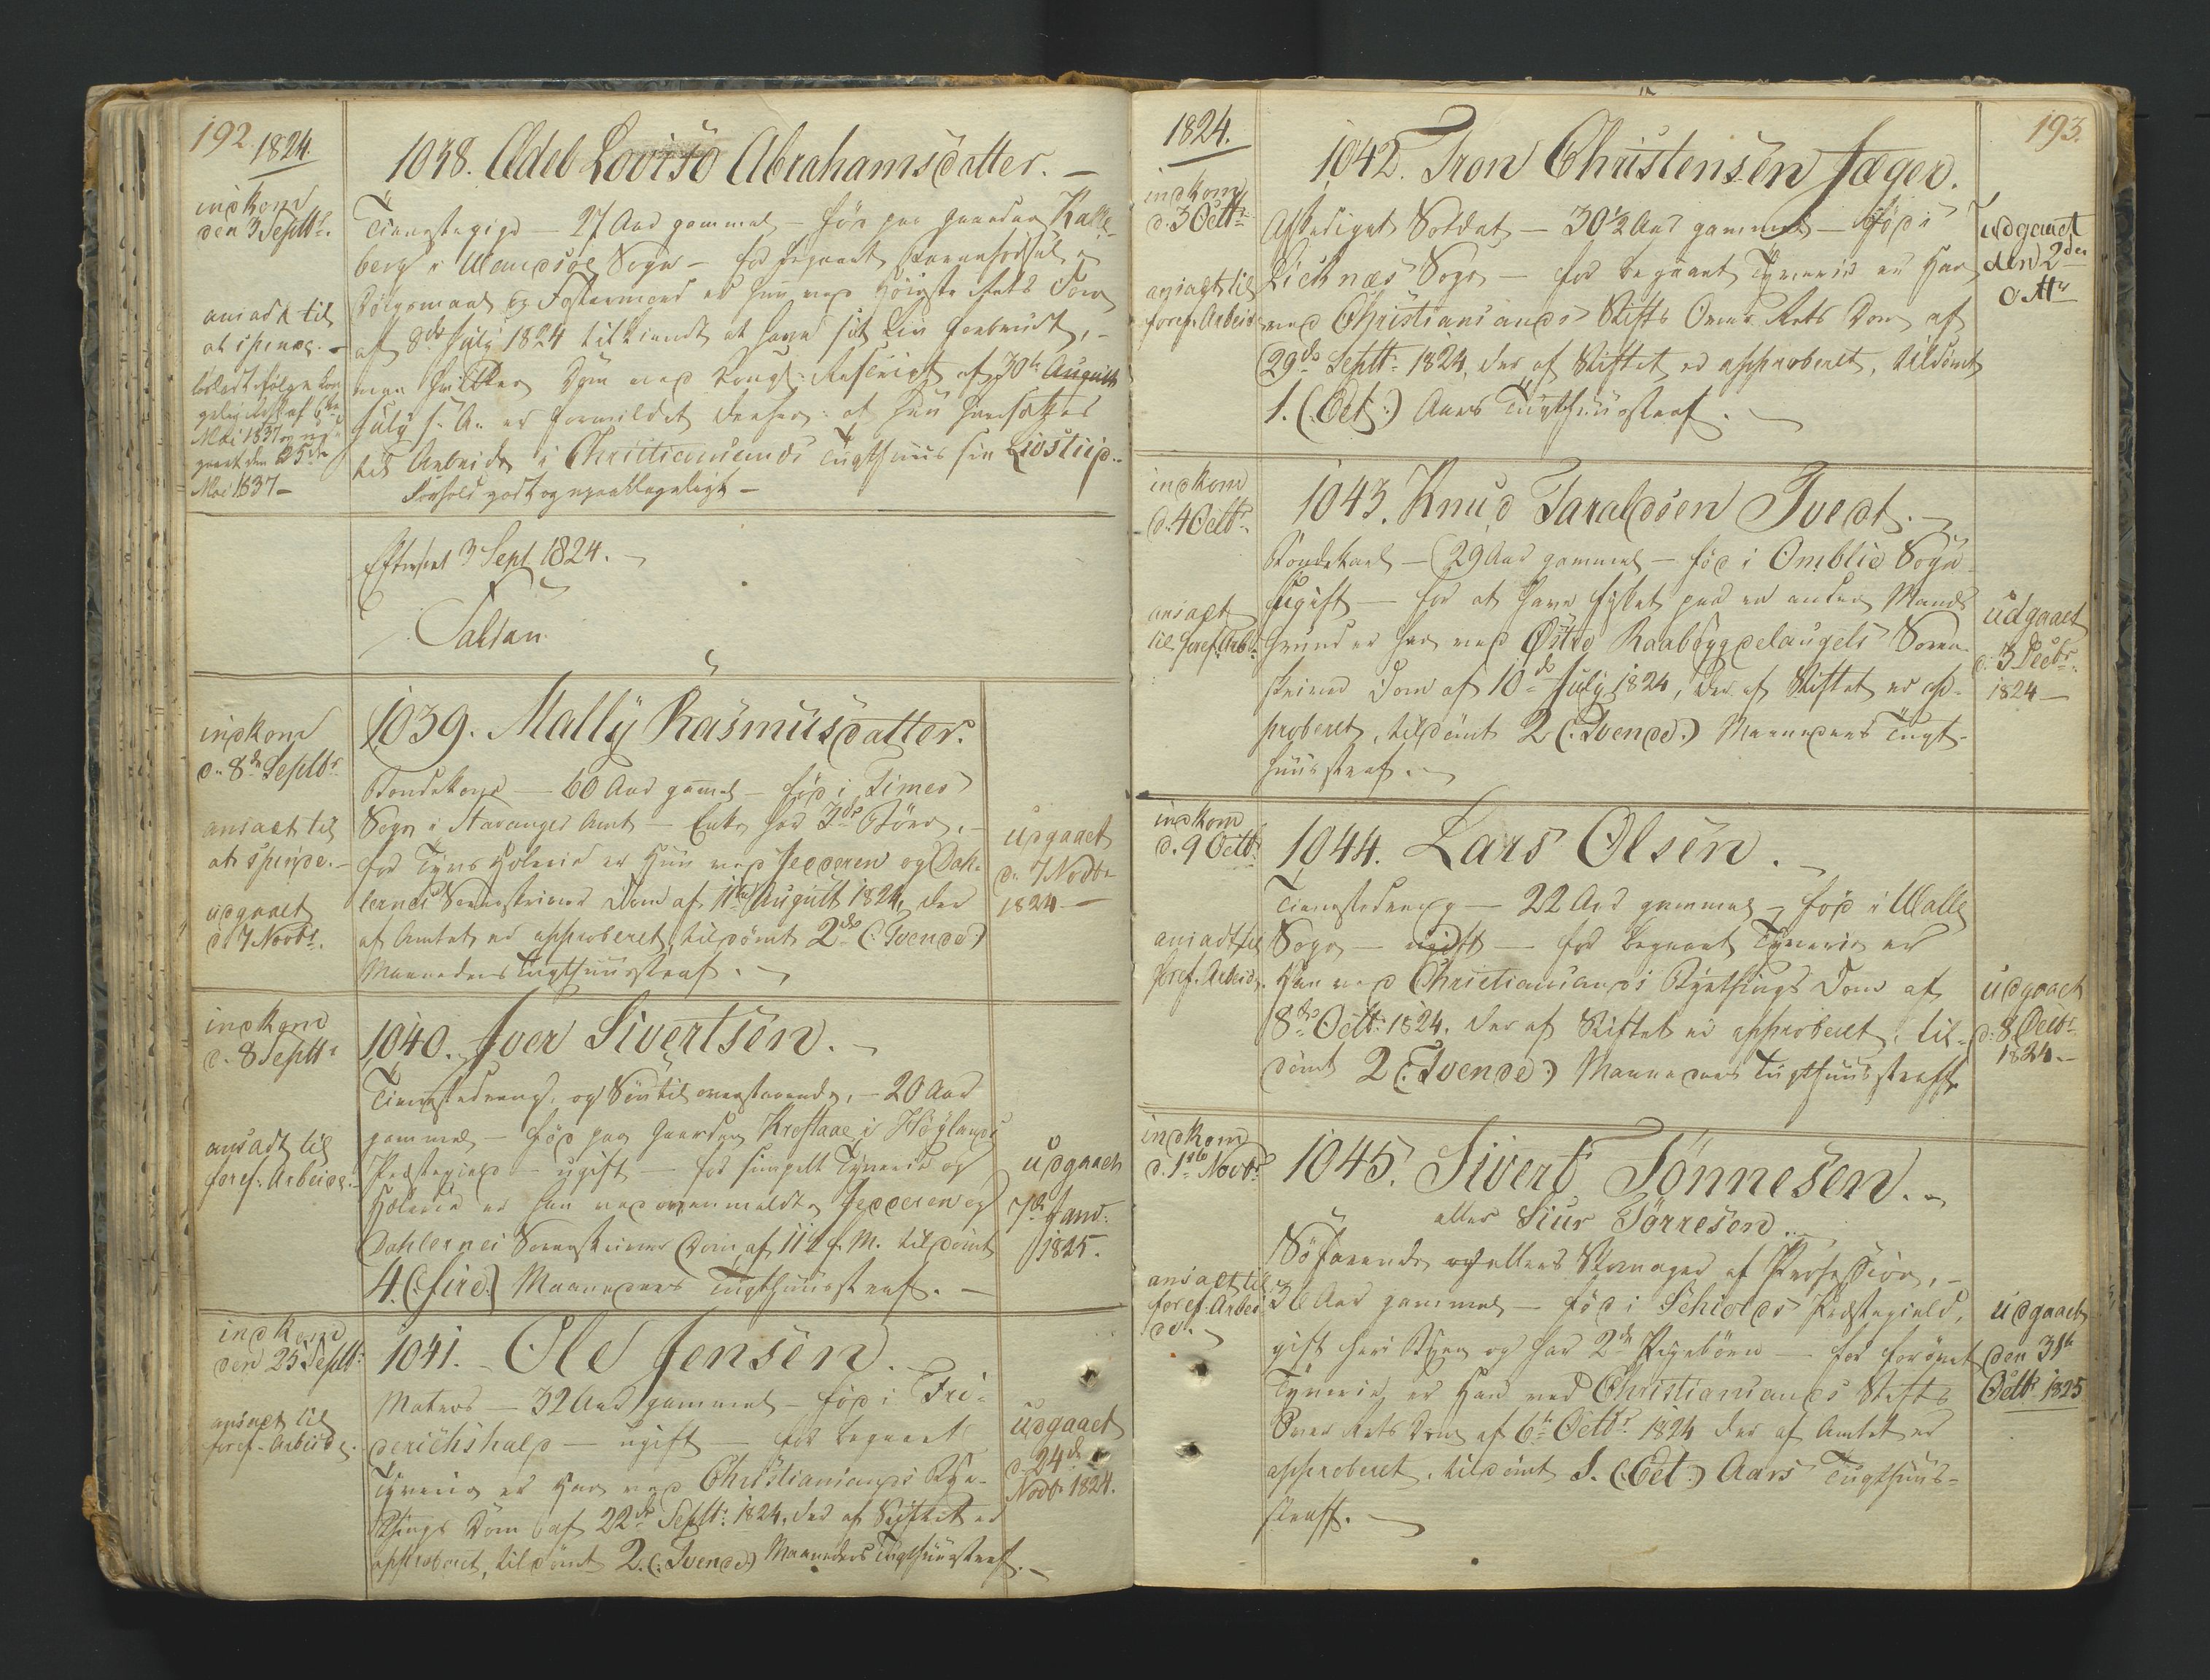 192.
1824.
indkom
den 3 Septbr.
ansadt til
at spinde. -
løsladt ifølge kon
gelig Resk. af 6te
Mai 1837 og ud-
gaaet den 25de
Mai 1837 -
1038. Adel Lovise Abrahamsdatter. -
Tienestepige - 27 Aar gammel - fød paa Gaarden Kalle-
berg i Vandsøe Sogn - for begaaet Barnefødsel i
Dølgsmaal og Fostermord er hun ved Høieste Rets Dom
af 8de July 1824 tilkiendt at have sit Liv forbrudt, -
men hvilken Dom ved Kongl: Rescript af 30te August
July s. A. er formildet derhen: at hun hensættes
til Arbeide i Christiansands Tugthuus sin Livstiid. -
Forhold godt og upaaklageligt -
Efterseet 3 Sept 1824. -
indkom
d. 8de Septbr
ansadt til
at spinde. -
udgaaet
d. 7 Novbr.
1039. Mally Rasmusdatter.
Bondekone - 60 Aar gaml - fød i Times
Sogn i Stavanger Amt - Enke har 3de Børn, -
for Tyvs Hæleri er Hun ved Jedderen og Dah-
lernes Sorenskriver Dom af 11te August 1824, der
af Amtet er approberet, tildømt 2de (: Tvende)
Maaneders Tugthuusstraf. -
udgaaet
d. 7 Novbr
1824 -
indkom
d. 8 Septbr
ansadt til
foref. Arbeide. -
1040. Iver Sivertsen. -
Tienestedreng, og Søn til ovenstaaende, - 20 Aar
gammel - fød paa Gaarden Kroslaae i Høylands
Præstegield - ugift - for simpelt Tyverie og
Hælerie er han ved ovenmeldte Jedderen og
Dahlernes Sorenskriver Dom af 11te f. M. tildømt
4. (: fire) Maaneders Tugthuusstraf. -
udgaaet
7de Janv:
1825.
indkom
den 25 Septbr
ansadt til
foref. Arbeide.
1041. - Ole Jensen. -
Matros - 32 Aar gammel - fød i Fri-
derichshald - ugift - for begaaet
Tyverie er Han ved Christiansands Bye-
things Dom af 22de Septbr: 1824, der af Stiftet er
approberet, tildømt 2. (: Tvende) Maaneders Tugthuusstraf. -
udgaaet
d. 24de
Novbr 1824.
1824.
193.
indkom
d. 3 Octbr
ansadt til
foref. Arbeide
1042. Tron Christensen Jæger.
Afskediget Soldat - 30 1/2 Aar gammel - fød i
Qvicknæs Sogn - for begaaet Tyverie er Han
ved Christiansands Stifts Over Rets Dom af
29de Septbr: 1824, der af Stiftet er approberet, tildømt
1. (: Eet :) Aars Tugthuusstraf. -
udgaaet
den 2den
Octbr
indkom
d. 4 Octbr
ansadt
til foref. Arbd.
1043. Knud Taraldsen Tvedt. -
Bondekarl - 29 Aar gammel - fød i Omblie Sogn
ugift - for at have fisket paa en anden Mands
Grund er han ved Østre Raabøygdelaugets Soren-
skriver Dom af 10de July 1824, der af Stiftet er ap-
proberet, tildømt 2 (: Tvende :) Maaneders Tugt-
huusstraf. -
udgaaet
d. 3 Decbr.
1824 -
indkom
d. 9 Octbr
ansadt til
foref. Arbeide.
1044. Lars Olsen. -
Tienestedreng - 22 Aar gammel - fød i Valle
Sogn - ugift - for begaaet Tyverie er
Han ved Christiansands Byethings Dom af
8de Octbr: 1824, der af Stiftet er approberet, til-
dømt 2 (: Tvende :) Maaneders Tugthuusstraff.
udgaaet
d. 8 Decbr
1824. -
indkom
d. 1ste Novbr
ansadt til
foref. Arbei
de. -
1045. Sivert Tønnesen. -
eller Siur Tørresen. -
Søfarende og ellers Skomager af Profession, -
36 Aar gammel - fød i Schiolds Præstegield,
gift her i Byen og har 2de Pigebørn - for forøvet
Tyverie er Han ved Christiansands Stifts
Over Rets Dom af 6te Octbr 1824 der af Amtet er
approberet, tildømt 1. (: Eet :) Aars Tugthuus-
straff. -
udgaaet
den 31te
Octbr 1825